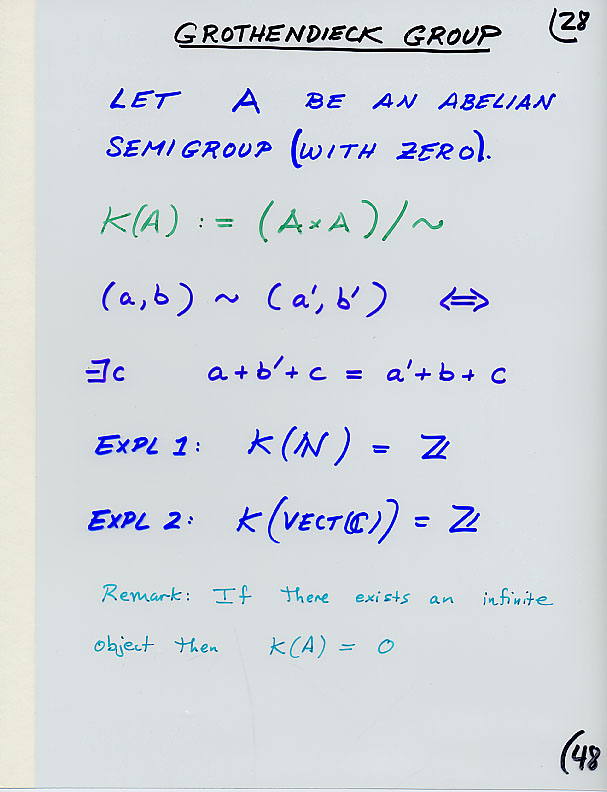 GROTHENDIECK GROUP (28
LET A BE AN ABELIAN
SEMIGROUP (WITH ZERO).
K(A) := (A×A)/~
(a,b) ~ (a',b') ⟺
∃c a+b'+c = a'+b+c
EXPL 1: K(ℕ) = ℤ
EXPL 2: K(VECT(ℂ)) = ℤ
Remark: If there exists an infinite
object then K(A) = 0
(48